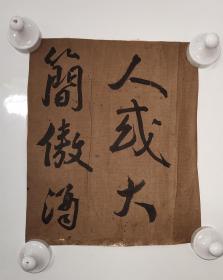 人或大
簡傲酒